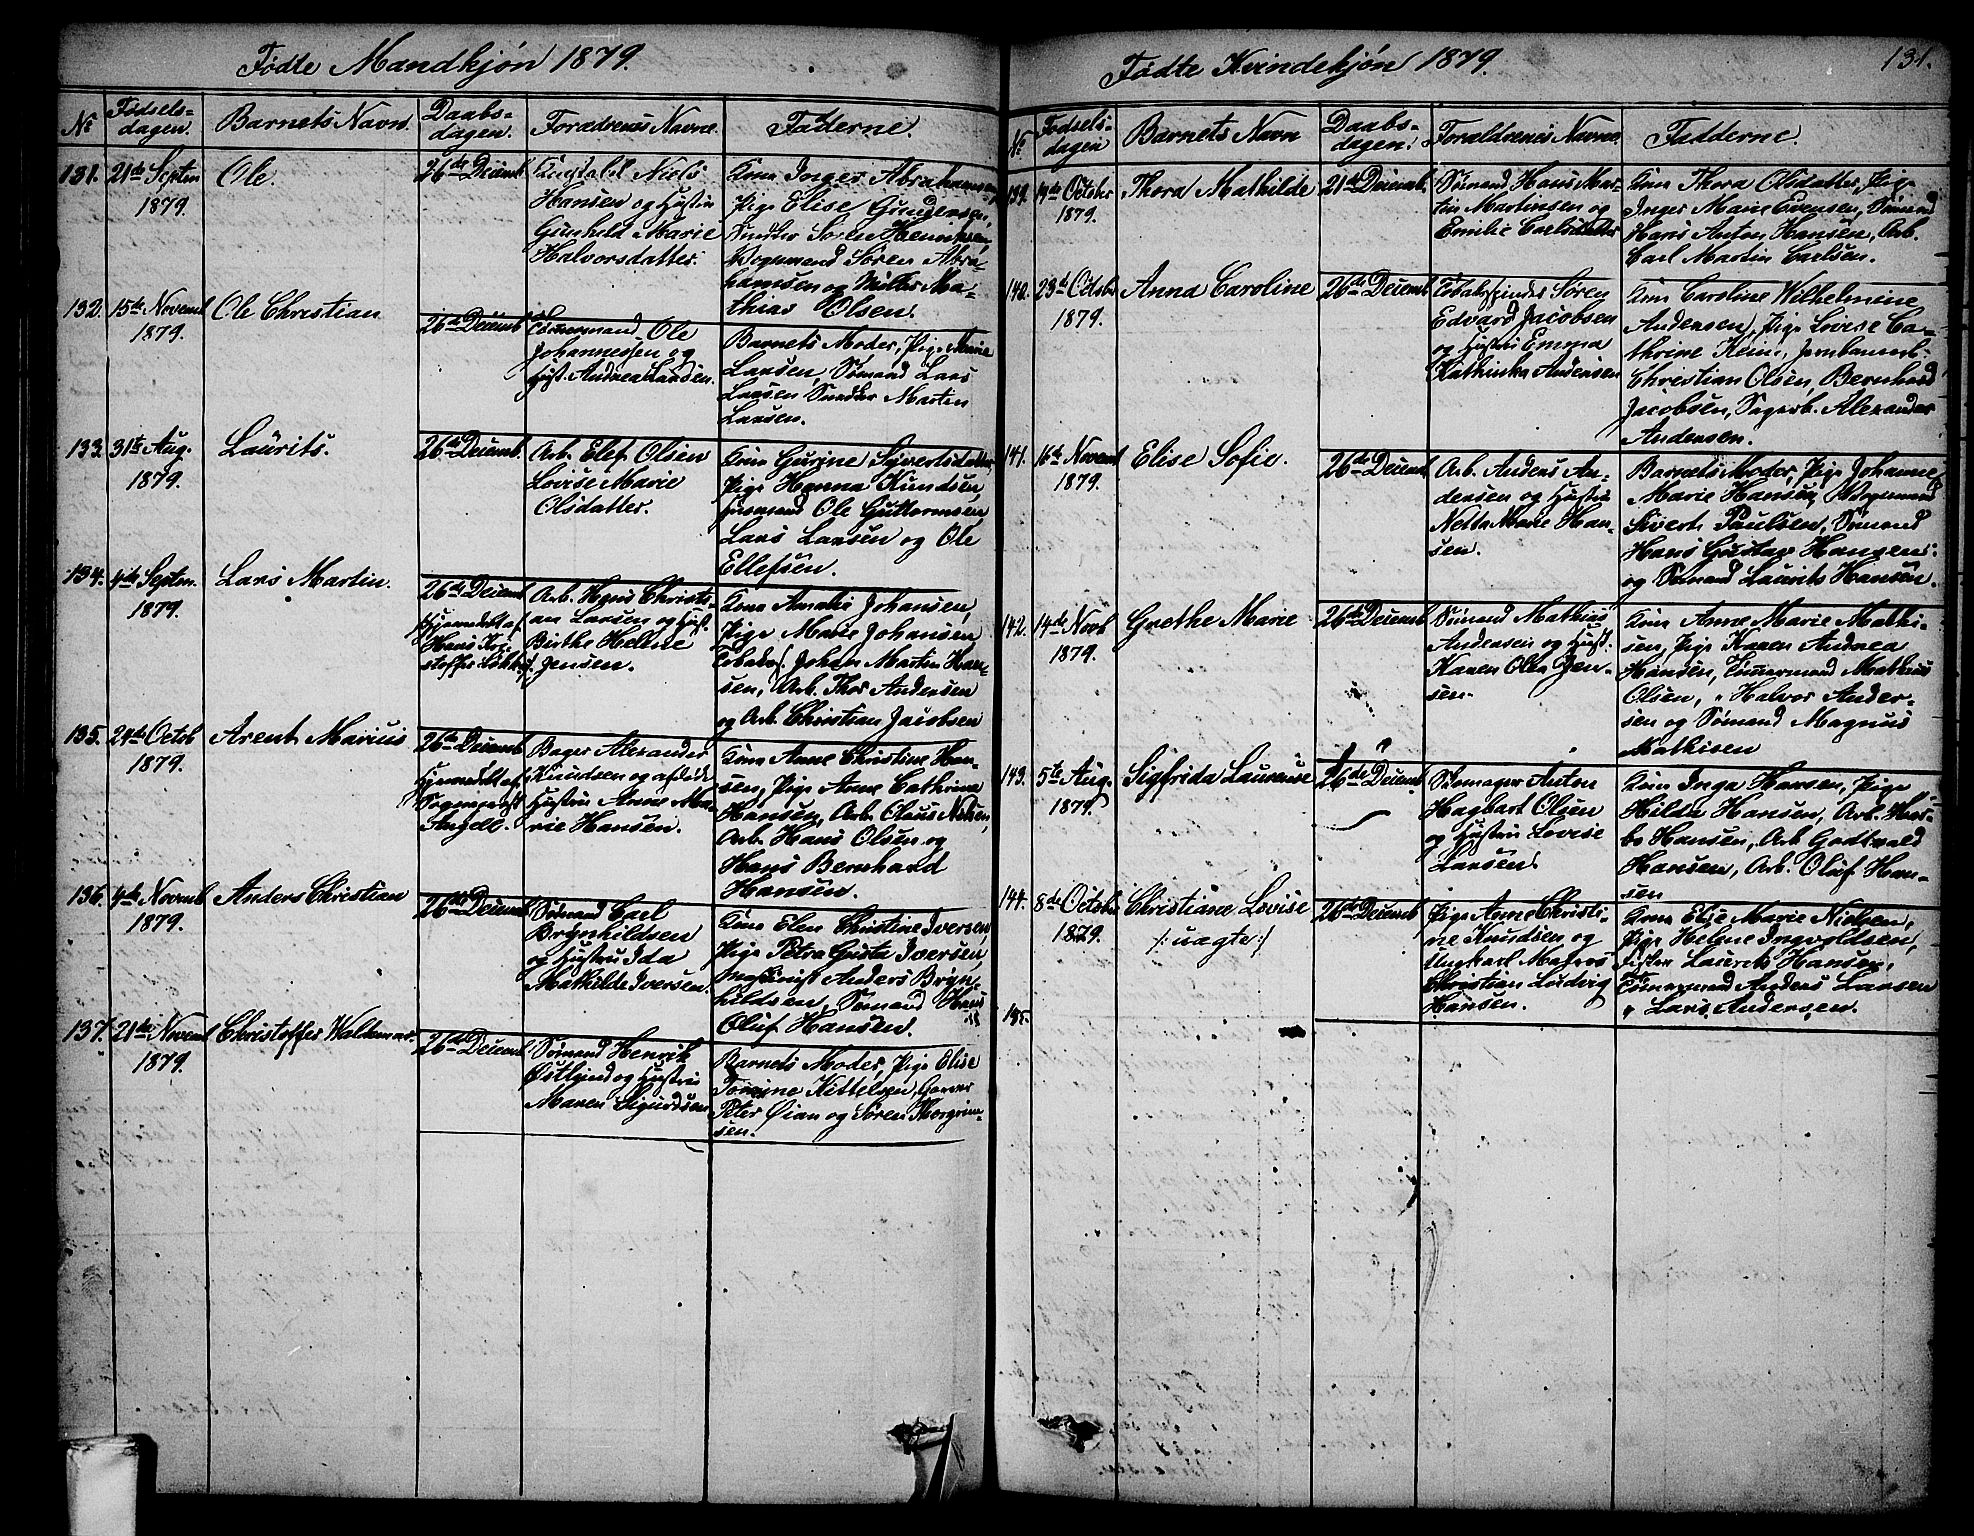 Fødte Mandkjøn 1879.
No
Fødsels-
dagen.
Barnets Navn.
Daabs-
dagen.
Forældrenes Navne.
Fadderne.
131.
21de Septm
1879.
Ole.
26de Decemb
Niels
Hansen og Hustru
Gunhild Marie
Halvorsdatter.
Kone Inger Abrahamsen,
Pige Elise Gundersen,
Snedker Søren Henriksen,
Vognmand Søren Abra-
hamsen og Møller Ma-
thias Olsen.
132.
15de Novemb
1879.
Ole Christian
26de Decemb
Tømmermand Ole
Johannessen og
Hust. Andrea Larsen.
Barnets Moder, Pige Marie
Larsen, Sømand Lars
Larsen Snedker Martin
Larsen.
133.
31te Aug.
1879.
Laurits.
26de Decemb.
Arb. Elef Olsen
Lovise Marie
Olsdatter.
Kone Gurine Syvertsdatter,
Pige Hanna Knudsen,
Husmand Ole Guttormsen
Lars Larsen og Ole
Ellefsen.
134.
4de Septm.
1879.
Lars Martin.
26de Decemb
Hjemmedøbt af
Hans Kri-
stoffer
Arb. Hans Christi-
an Larsen og Hust.
Birthe Helene
Jensen.
Kone Amalie Johansen,
Pige Marie Johansen
Johan Martin Han-
sen, Arb. Thor Andersen
og Arb. Christian Jacobsen
135.
24de Octob
1879.
Arent Marius
26de Decemb
Hjemmedøbt af
Sogneprest
Angell.
Bager Alexander
Knudsen og afdøde
Hustru Anne Ma-
rie Hansen.
Kone Anne Christine Han-
sen, Pige Anne Cathrine
Hansen, Arb. Olaus Nilsen,
Arb. Hans Olsen og
Hans Bernhard
Hansen.
136.
4de Novemb
1879.
Anders Christian
26de Decemb
Sømand Carl
Brynhildsen
og Hustru Ida
Mathilde Iversen.
Kone Elen Christine Iversen,
Pige Petra Gusta Iversen,
Anders Bryn-
hildsen, Sømand Hans
Oluf Hansen.
137.
21de Novemb
1879.
Christoffer Waldemar.
26de Decemb
Sømand Henrik
Østlund og Hustru
Maren Sigurdsen
Barnets Moder, Pige Elise
Torine Kittelsen, Garver
Peter Øian og Søren Thorgrim-
sen.
Fødte Kvindekjøn 1879.
131.
No
Fødsels-
dagen
Barnets Navn
Daabs-
dagen.
Forældrenes Navne.
Fadderne.
139.
19de October
1879.
Thora Mathilde
21de Decemb.
Sømand, Hans Mar-
tin Martinsen og
Emilie Carlsdatter
Kone Thora Olsdatter, Pige
Inger Marie Evensen, Sømand
Hans Anton Hansen, Arb.
Carl Martin Carlsen.
140.
23de Octob
1879.
Anna Caroline
26de Decemb
Tobakspinder Søren
Edvard Jacobsen
og Hustru Emma
Kathinka Andersen
Kone Caroline Wilhelmine
Andersen, Pige Lovise Ca-
thrine Keim, Jernbanearb.
Christian Olsen, Bernhard
Jacobsen, Alexander
Andersen.
141.
16de Novemb
1879.
Elise Sofie.
26de Decemb
Arb. Anders An-
dersen og Hustru
Netta Marie Han-
sen.
Barnets Moder, Pige Johanne
Marie Hansen, Vognmand
Sivert Paulsen, Sømand
Hans Gustav Hansen
og Sømand Laurits Hansen.
142.
14de Novb
1879.
Grethe Marie
26de Decemb
Sømand Mathias
Andersen og Hust.
Karen Olea Jen-
sen.
Kone Anne Marie Mathi-
sen, Pige Karen Andrea
Hansen, Tømmermand Mathias
Olsen, " Halvor Ander-
sen og Sømand Magnus
Mathisen
143.
5te Aug.
1879.
Sigfrida Laurense
26de Decemb
Skomager Anton
Hagbart Olsen
og Hustru Lovise
Larsen.
Kone Inga Hansen, Pige
Hilda Hansen, Arb. Has-
bo Hansen, Arb Godtvald
Hansen, Arb. Oluf Han-
sen
144.
8de Octob
1879.
Christiane Lovise
/: uægte :/
26de Decemb
Pige Anne Christi-
ne Knudsen og
Ungkarl Matros
Christian Ludvig
Hansen.
Kone Elise Marie Nielsen,
Pige Helene Ingvoldsen,
Fisker Laurits Hansen,
Tømmermand Anders Larsen
" Lars Andersen.